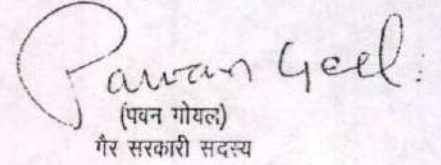 Pawan Goel.
(पवन गोयल)
गैर सरकारी सदस्य